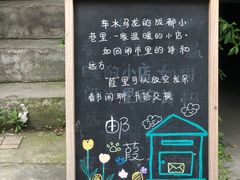 车水马龙的成都小
巷里一家温暖的小店。
如同都市里的诗和
远方。
"葭里可以放空发呆
看书闲聊·书信交换
邮
葭